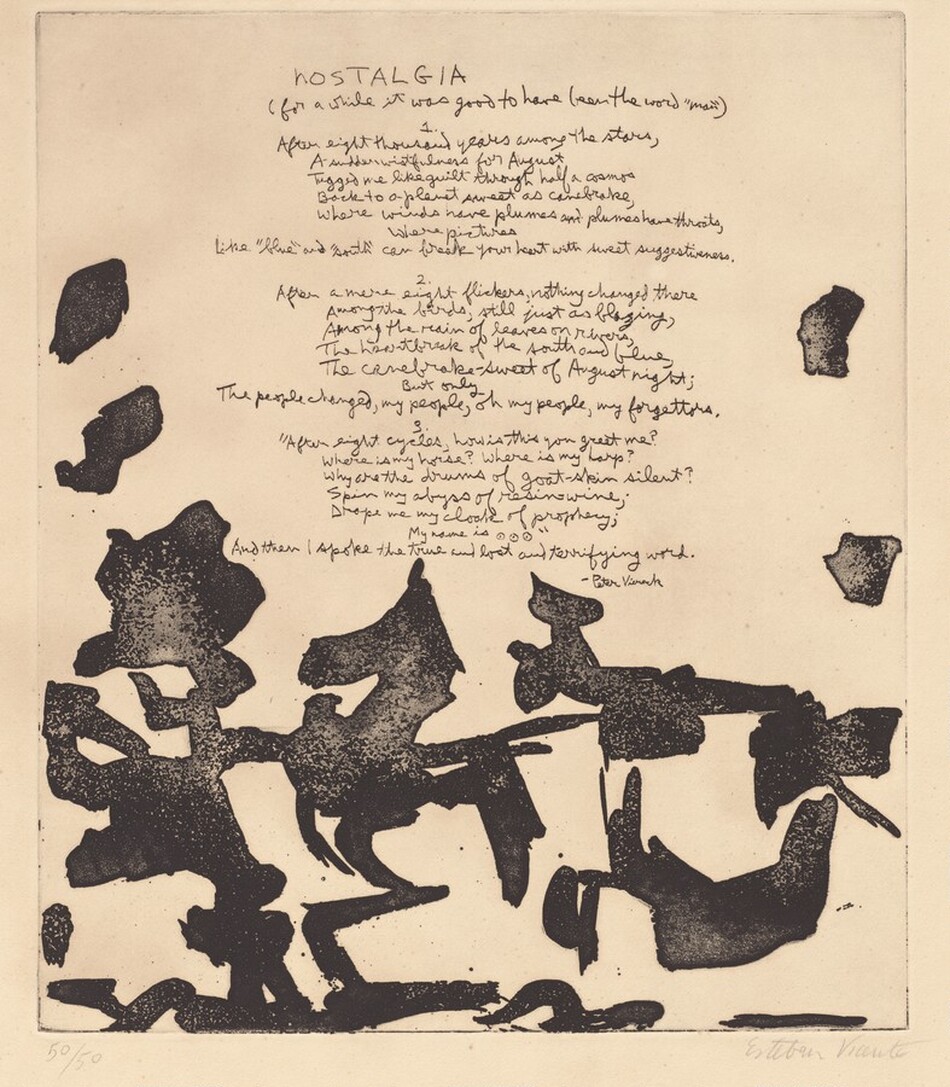 NOSTALGIA
(for a while it was good to have been the word "man")
1.
After eight thousand years among the stars,
A sudden wistfulness for August
Tugged me like guilt through half a cosmos
Back to a planet sweet as canebrake,
Where winds have plumes and plumes have throats,
Where pictures
Like "blue" and "south" can break your heart with sweet suggestiveness.
2.
After a mere eight flickers, nothing changed there
Among the birds, still just as blazing,
Among the rain of leaves on rivers,
The heartbreak of the south and blue,
The canebrake-sweet of August night;
But only
The people changed, my people, oh my people, my forgettors.
3.
"After eight cycles, how is this you greet me?
Where is my horse? Where is my harp?
Why are the drums of goat-skin silent?
Spin my abyss of resin-wine;
Drape me my cloak of prophecy;
My name is ⊙⊙⊙"
And then I spoke the true and lost and terrifying word.
- Peter Viereck
50/50
Esteban Vicente